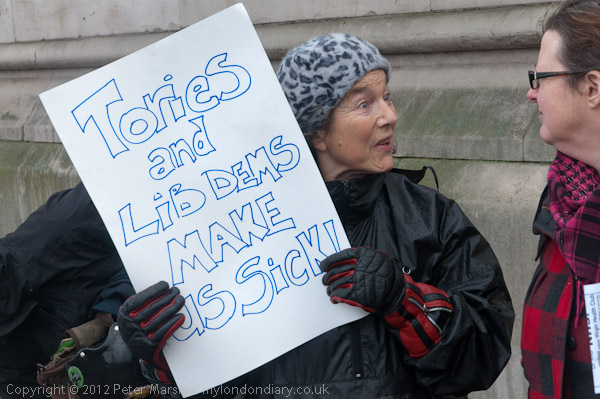 Tories
and
LIB DEMS
MAKE
us Sick!
Copyright © 2012 Peter Marshall mylondondiary.co.uk